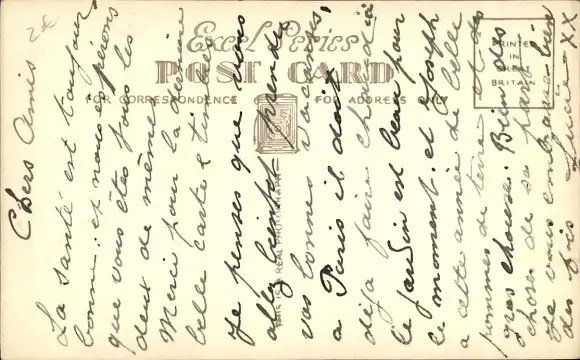 Excel Series
POST CARD
FOR CORRESPONDENCE
FOR ADDRESS ONLY
PRINTED
IN
GREAT
BRITAIN
Chers Amis
La santé est toujours
bonne. et nous espérons
que vous êtes tous les
deux de même
Merci pour la dernière
belle carte & timbres
Je penses que vous
allez bientôt prendre
vos bonnes vacances,
a Paris il doit
déja faire chaud ici
le jardin est beau pour
le moment. et Joseph
a cette année de belle
pommes de terre et des
gros choux. Brin des
choses de sa part
Je vous embrasse bien
des fois Lucie XX